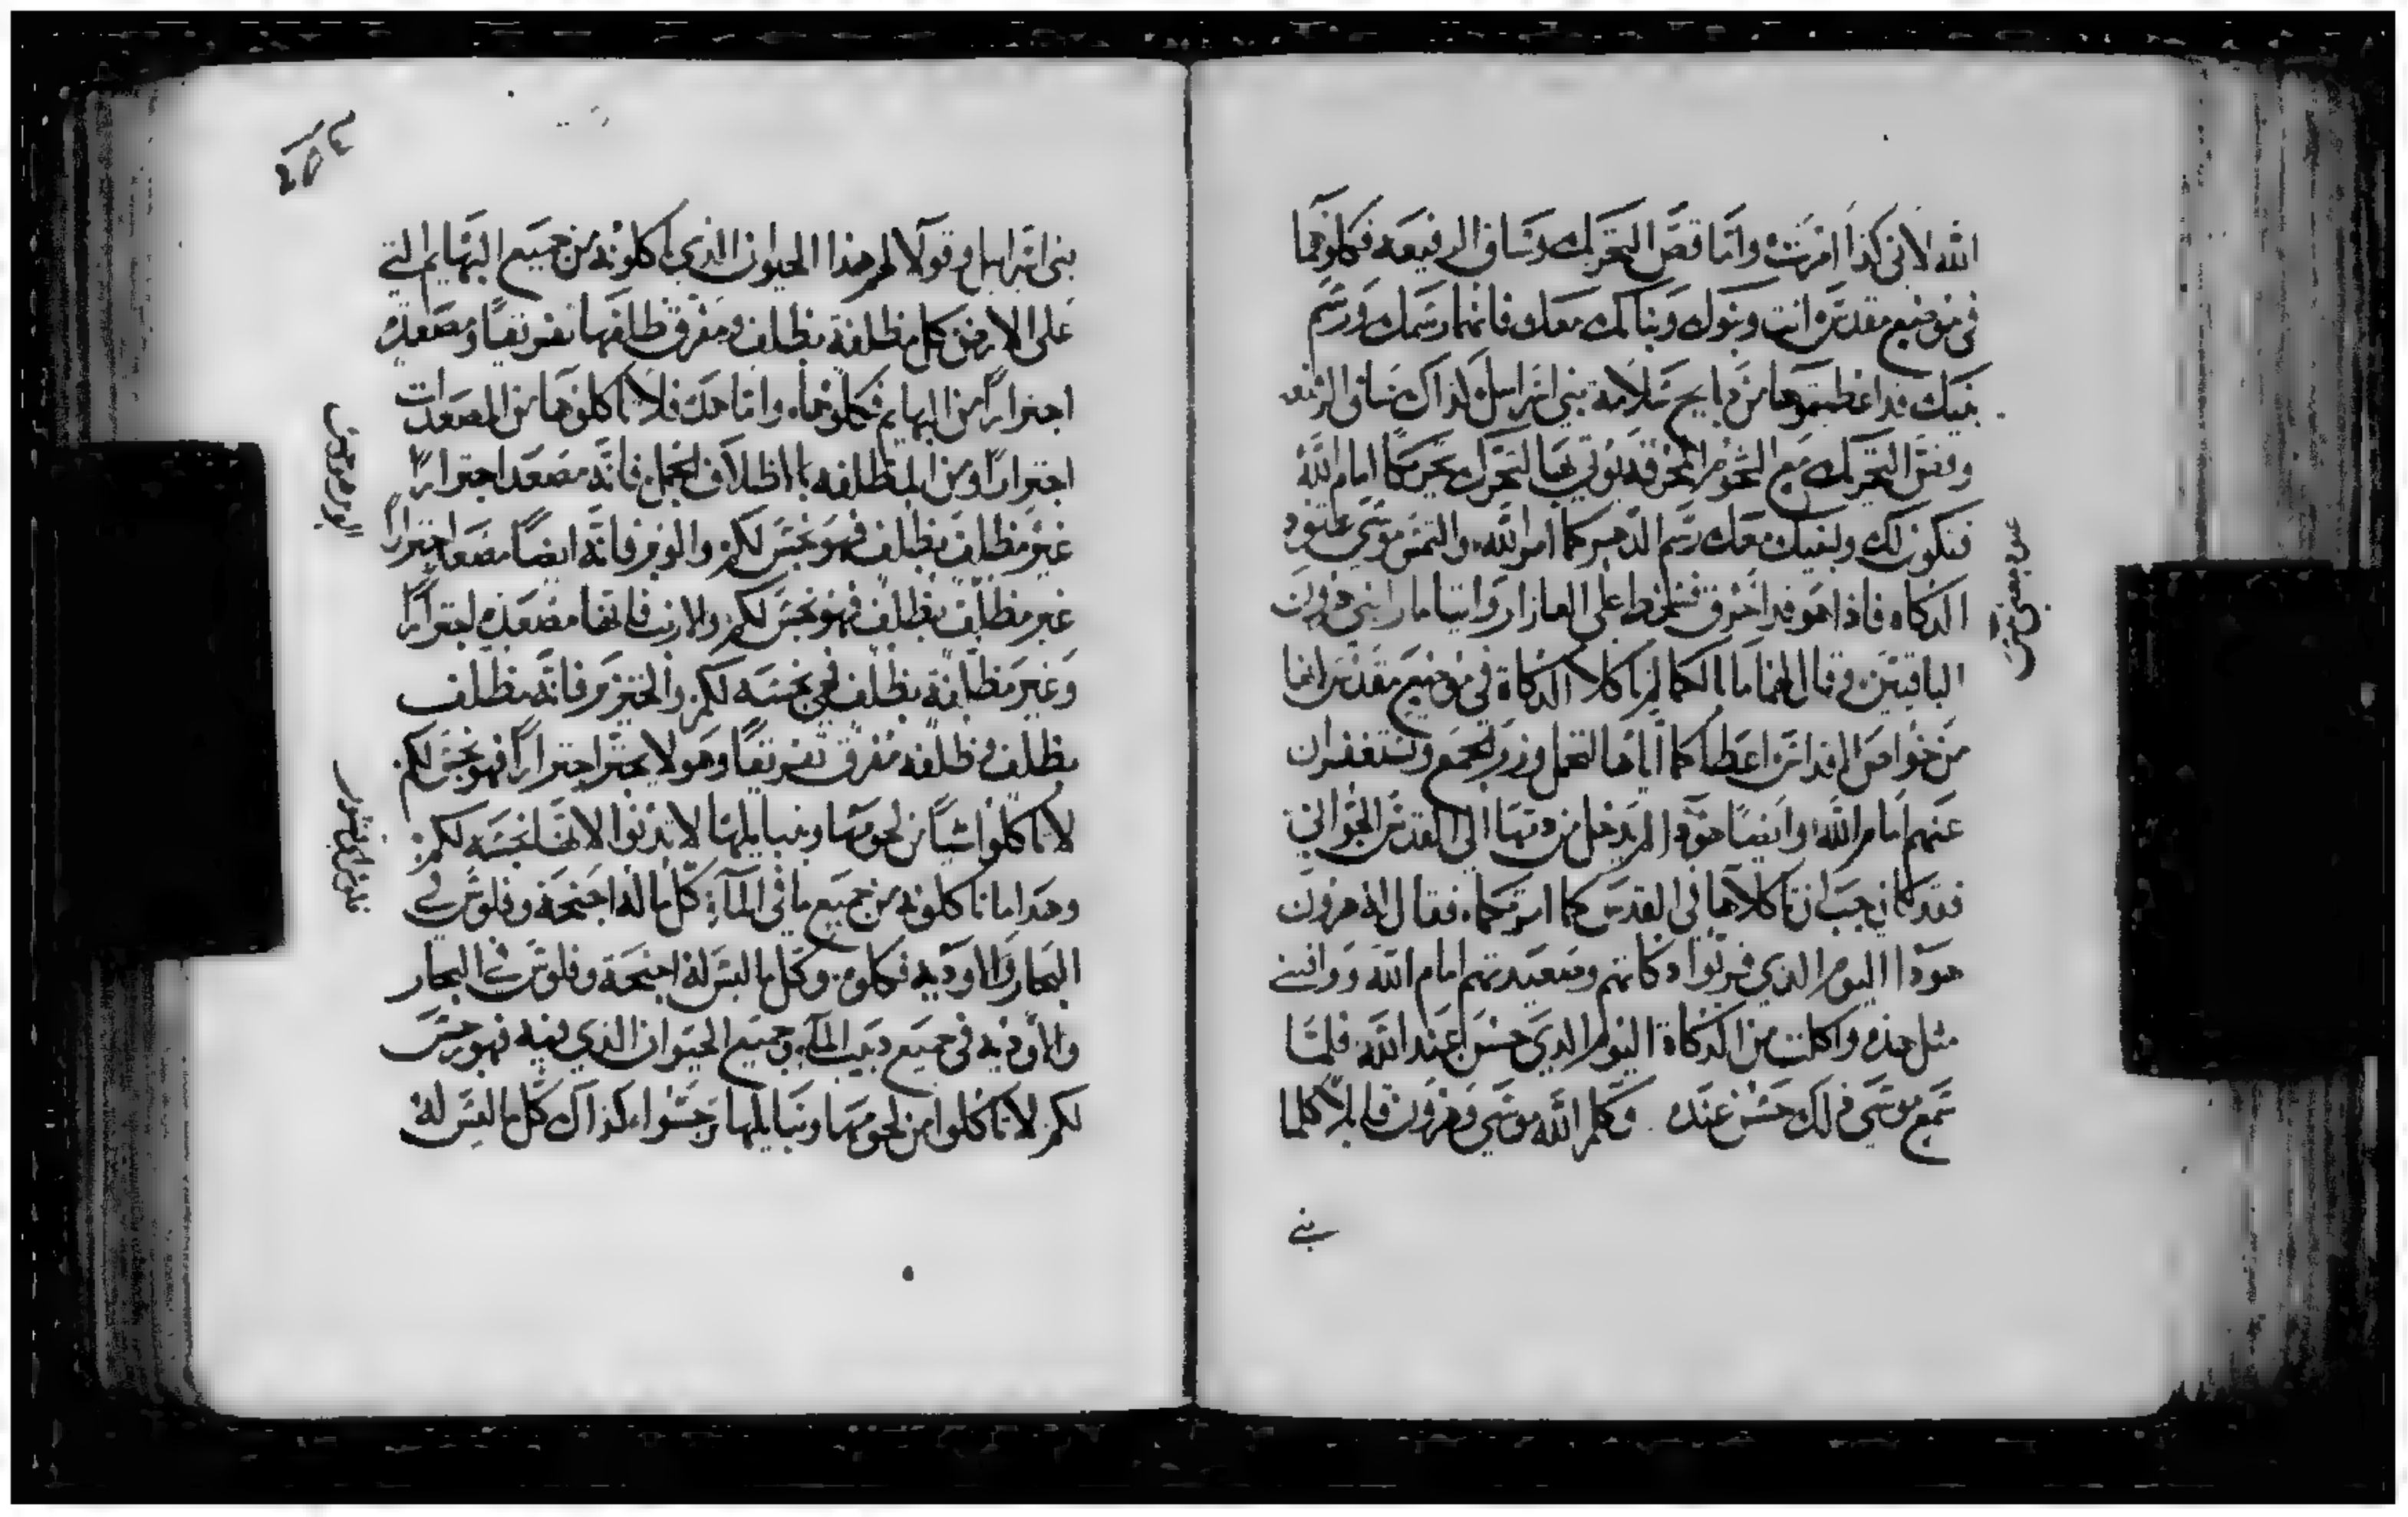 الله لاني كذا امرت واما قص التحريك وساق الرفيعه فكلوهما
في موضع مقدس انت وبنوك وبناتك معك فانهما رسمك ورسم
بنيك قد اعطيتموها من ذبايح سلامة بني اسرايل كذاك ساق الرفيعه
وقص التحريك مع الشحوم المحرقه يوتي بها لتحرك تحريكا امام الله
فتكون لك ولبنيك معك رسم الدهر كما امر الله والتمس موسى عتود
الذكاه فاذا هو قد احترق فسخط على العازار وايتامار ابني هرون
الباقيين وقال لهما ما بالكما لم تاكلا الذكاة في موضع مقدس انها
من خواص الاقداس اعطاكما اياها لتحمل وزر الجمع وتستغفران
عنهم امام الله وايضا هوذا لم يدخل من دمها الى القدس الجواني
فقد كان يجب ان تاكلاها في القدس كما امرتكما فقال له هرون
هوذا اليوم الذي قربوا ذكاتهم وصعيدتهم امام الله ووافتني
مثل هذه واكلت من الذكاة اليوم الذي حسن عند الله فلما
سمع موسى ذلك حسن عنده وكلم الله موسى وهرون قايلا كلما
بني
بني اسرايل وقولا لهم هذا الحيوان الذي تاكلونه من جميع البهايم التي
على الارض كل مظلفة بظلف ومفرق ظلفها تفريقا ومصعدة
اجترارا من البهايم فكلوها واما هذه فلا تاكلوها من المصعدات
اجترارا ومن المظلفه باظلاف الجمل فانه مصعد اجترارا
غير مظلف بظلف فهو نجس لكم والوبر فانه ايضا مصعد اجترارا
غير مظلف بظلف فهو نجس لكم والارنب فانها مصعدة اجترارا
وغير مظلفة بظلف فهي نجسه لكم والخنزير فانه مظلف
بظلف وظلفه مفرق تفريقا وهو لا يجتر اجترارا فهو نجس لكم
لا تاكلوا شيا من لحومها ونبايلها لا تدنوا لانها نجسه لكم
وهذا ما تاكلونه من جميع ما في الماء كل ما له اجنحة وفلوس في
البحار والاوديه فكلوه وكل ما ليس له اجنحة وفلوس في البحار
والاوديه في جميع دبيب الماء وجميع الحيوان الذي فيه فهو رجس
لكم لا تاكلوا من لحومها ونبايلها رجسوا كذاك كل ما ليس له